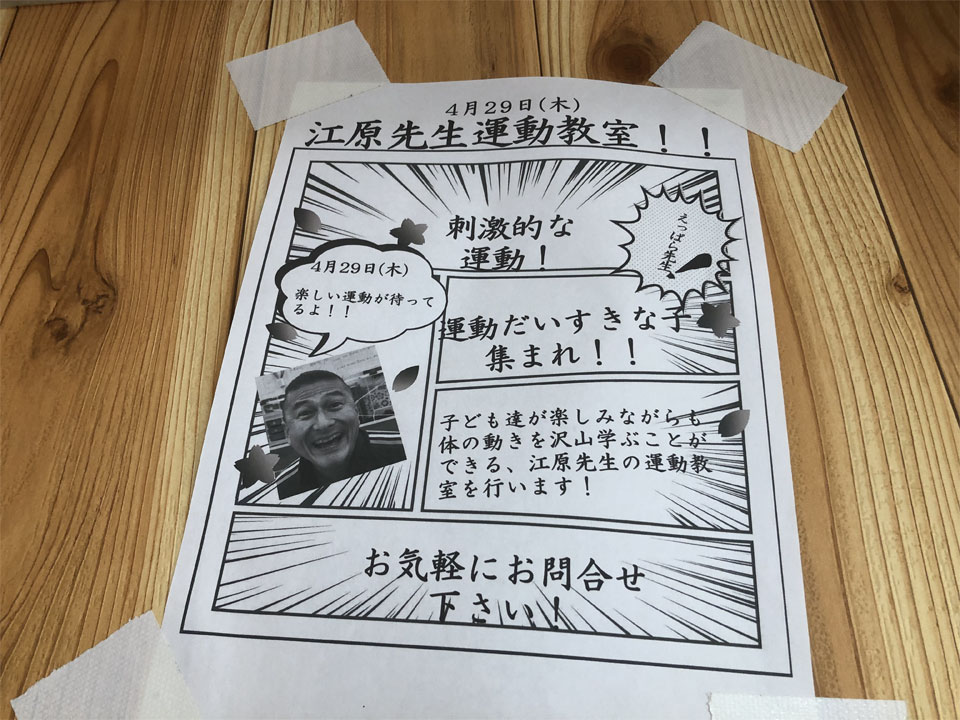 4月29日(木)
江原先生運動教室！！
刺激的な
運動！
えっばら先生
4月29日(木)
楽しい運動が待って
るよ！！
運動だいすきな子
集まれ！！
子ども達が楽しみながらも
体の動きを沢山学ぶことが
できる、江原先生の運動教
室を行います！
お気軽にお問合せ
下さい！